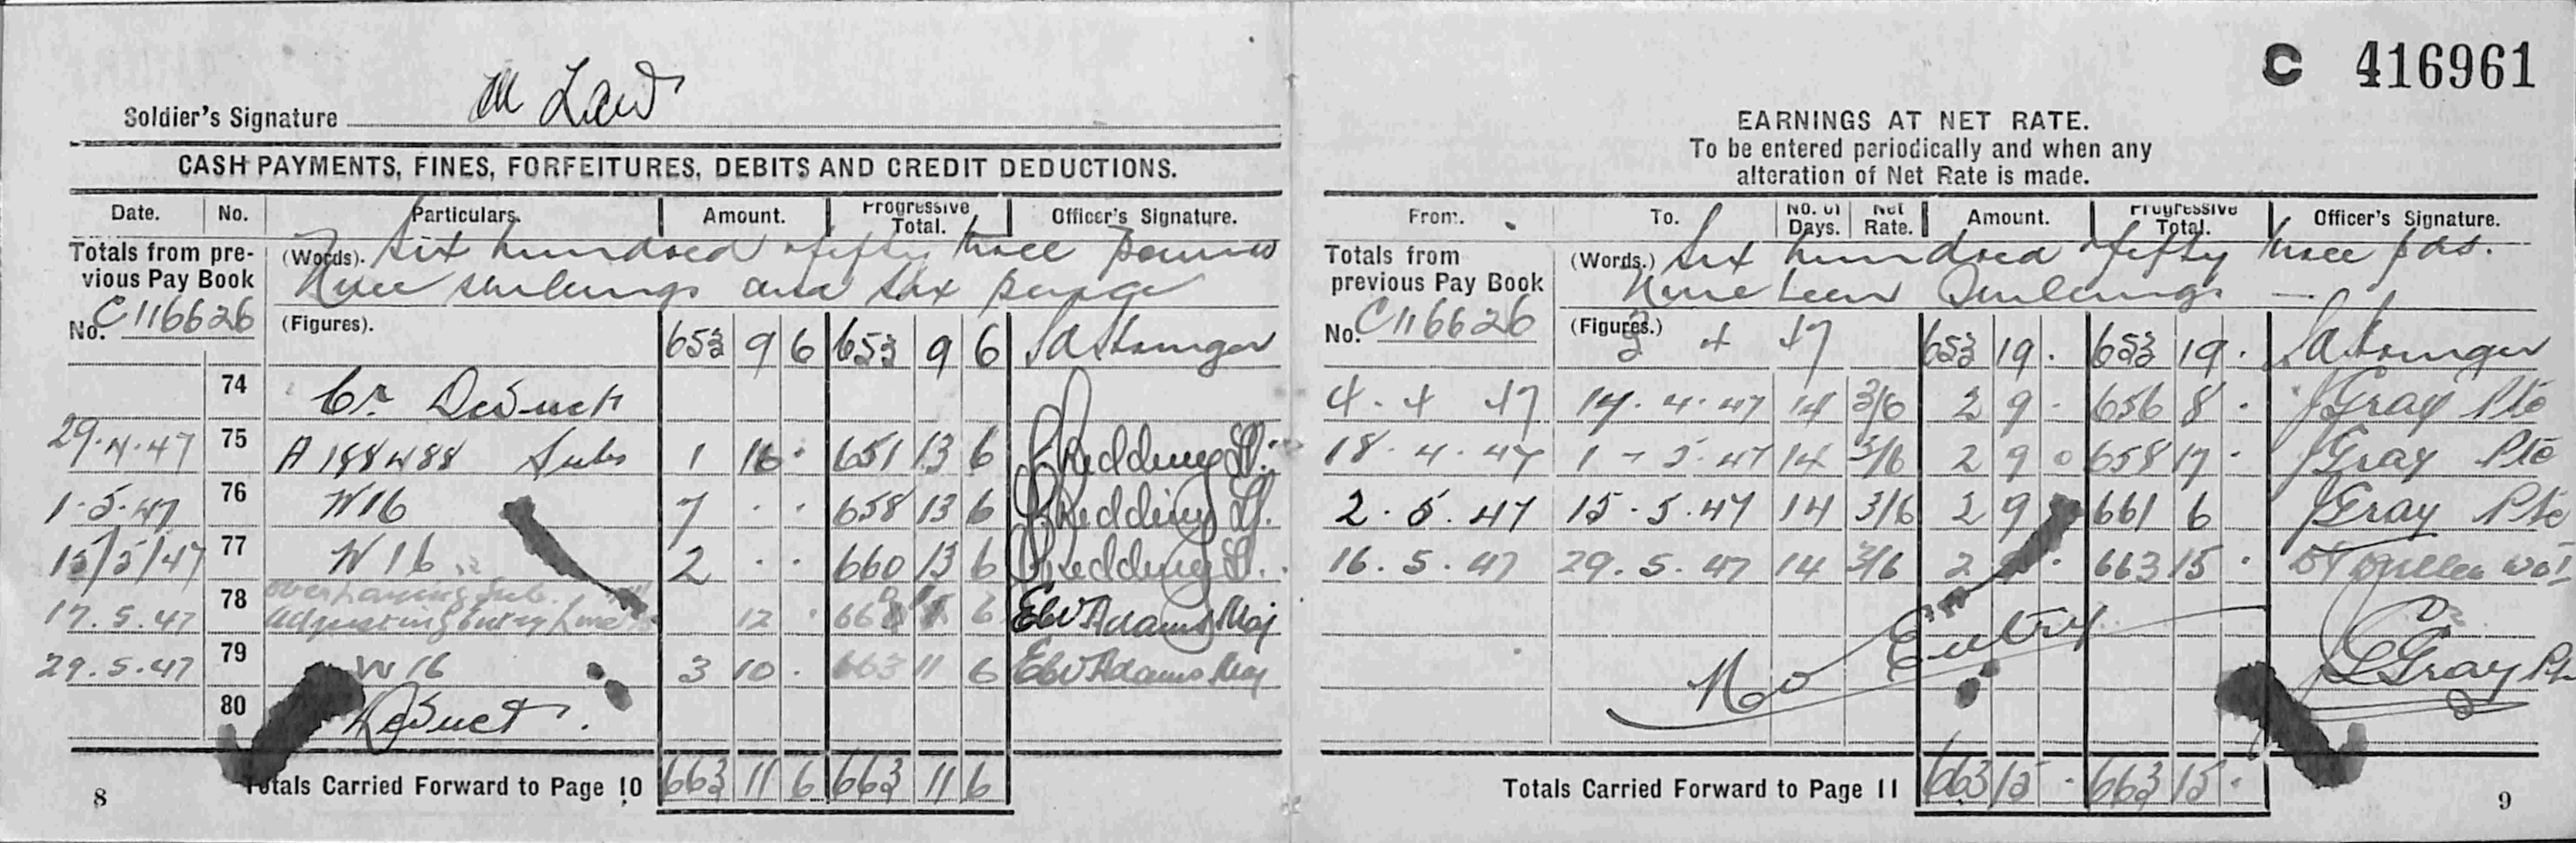 C 416961
Soldier's Signature M Law
CASH PAYMENTS, FINES, FORFEITURES, DEBITS AND CREDIT DEDUCTIONS.
Date. No. Particulars. Amount. Progressive Total. Officer's Signature.
Totals from pre-vious Pay Book (Words). Six hundred & fifty three pounds
Nine shillings and six pence
No. C116626 (Figures). 653 9 6 653 9 6
74 Cr Deduct
29.4.47 75 A188488 Subs 1 16 . 651 13 6 Redding Lt.
1.5.47 76 W16 7 . . 658 13 6 Redding Lt.
15/5/47 77 W16 2 . . 660 13 6 Redding Lt.
overpaying Sub.
17.5.47 78 Adjusting Entry 12 . 6 EW Adams Maj
29.5.47 79 W16 3 10 . 663 11 6 EW Adams Maj
80 Deduct.
Totals Carried Forward to Page 10 663 11 6 663 11 6
8
EARNINGS AT NET RATE.
To be entered periodically and when any
alteration of Net Rate is made.
From. To. No. of Days. Net Rate. Amount. Progressive Total. Officer's Signature.
Totals from previous Pay Book (Words.) Six hundred & fifty three pds.
Nineteen Shillings —
No. C116626 (Figures.) 3 4 47 653 19 . 653 19 .
4 . 4 47 14.4.47 14 3/6 2 9 . 656 8 . Gray Pte
18.4.47 1-5.47 14 3/6 2 9 0 658 17 . Gray Pte
2.5.47 15.5.47 14 3/6 2 9 661 6 Gray Pte
16.5.47 29.5.47 14 3/6 2 9 . 663 15 .
No Entry
Gray
Totals Carried Forward to Page 11 663 15 . 663 15 .
9